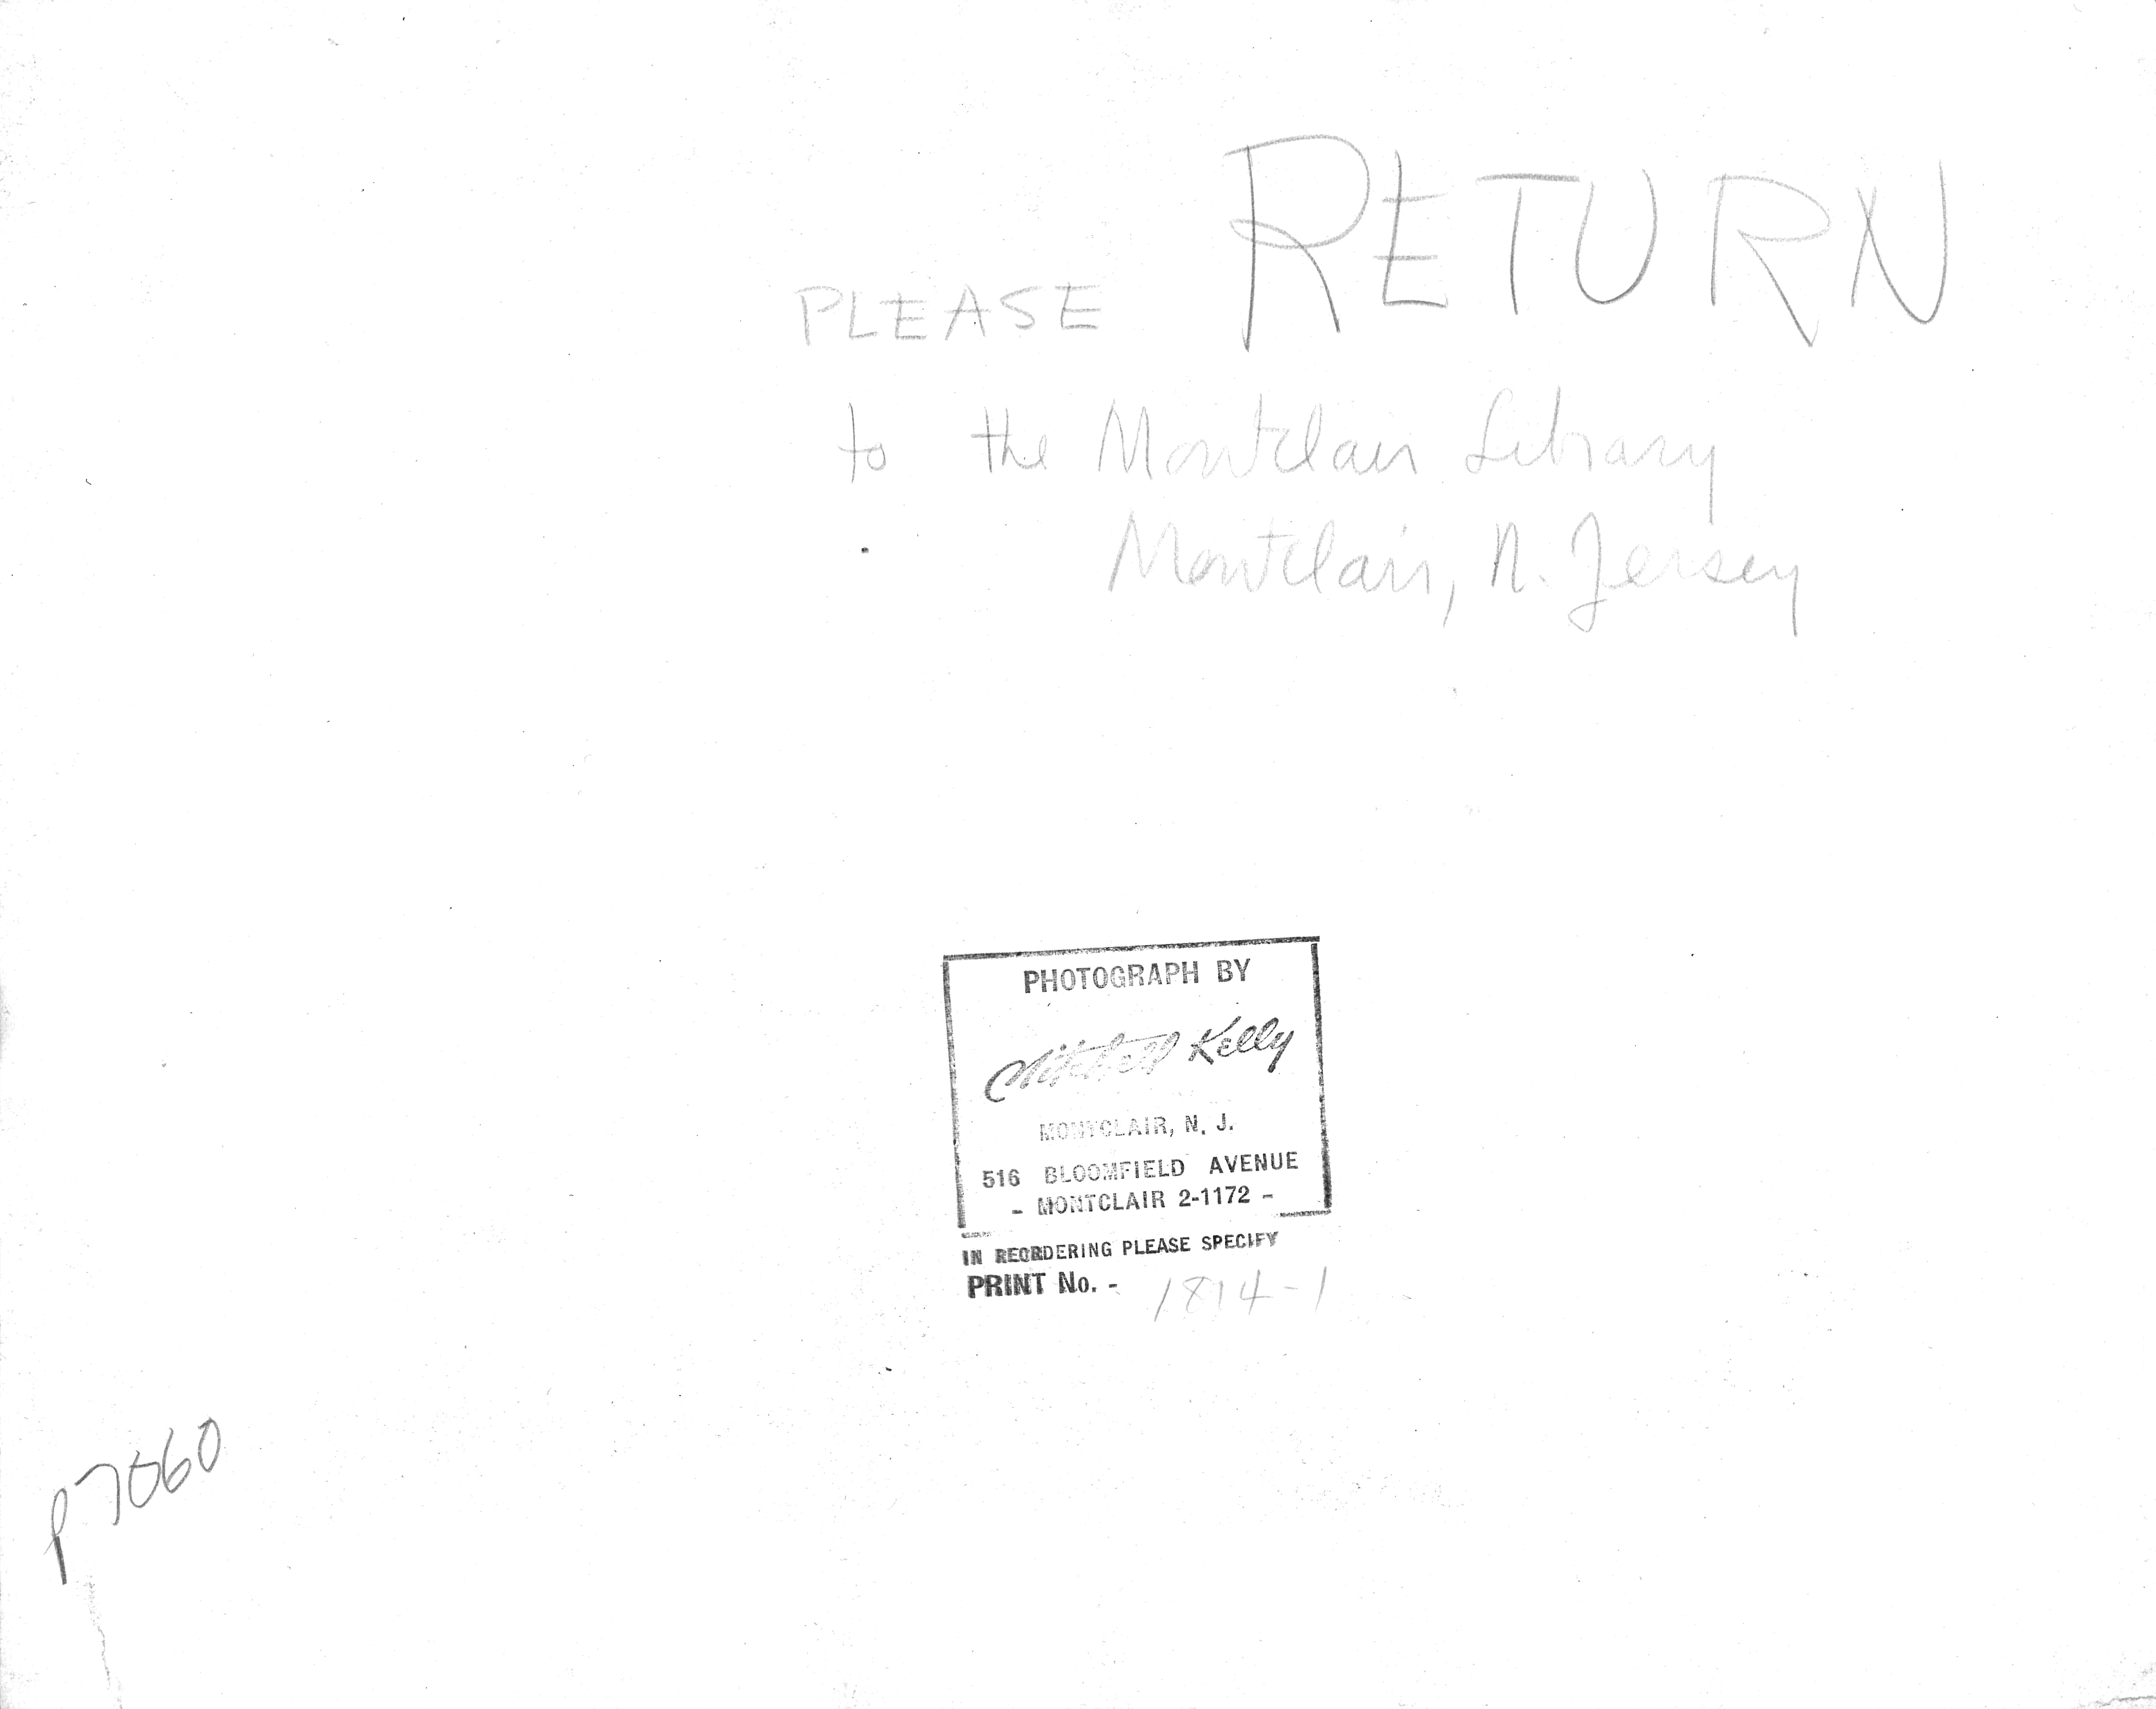 PLEASE RETURN
to the Montclair Library
Montclair, N. Jersey
PHOTOGRAPH BY
Mitchell Kelly
MONTCLAIR, N. J.
516 BLOOMFIELD AVENUE
- MONTCLAIR 2-1172 -
IN REORDERING PLEASE SPECIFY
PRINT No. - 1814-1
P7060